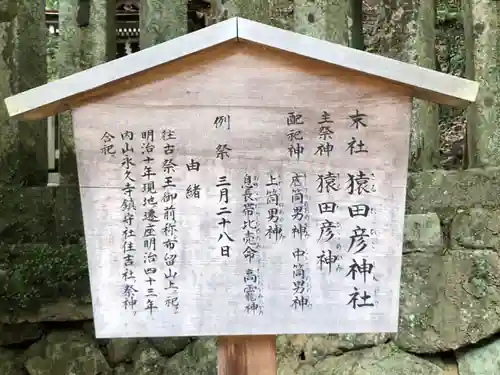 末社 猿田彦神社
主祭神 猿田彦神
配祀神 底筒男神 中筒男神
上筒男神
息長帯比売命 高龗神
例祭 三月二十八日
由緒
往古祭王御前称布留山上ニ祀
明治十年現地遷座明治四十三年
内山永久寺鎮守社住吉社祭神ヲ
合祀ス